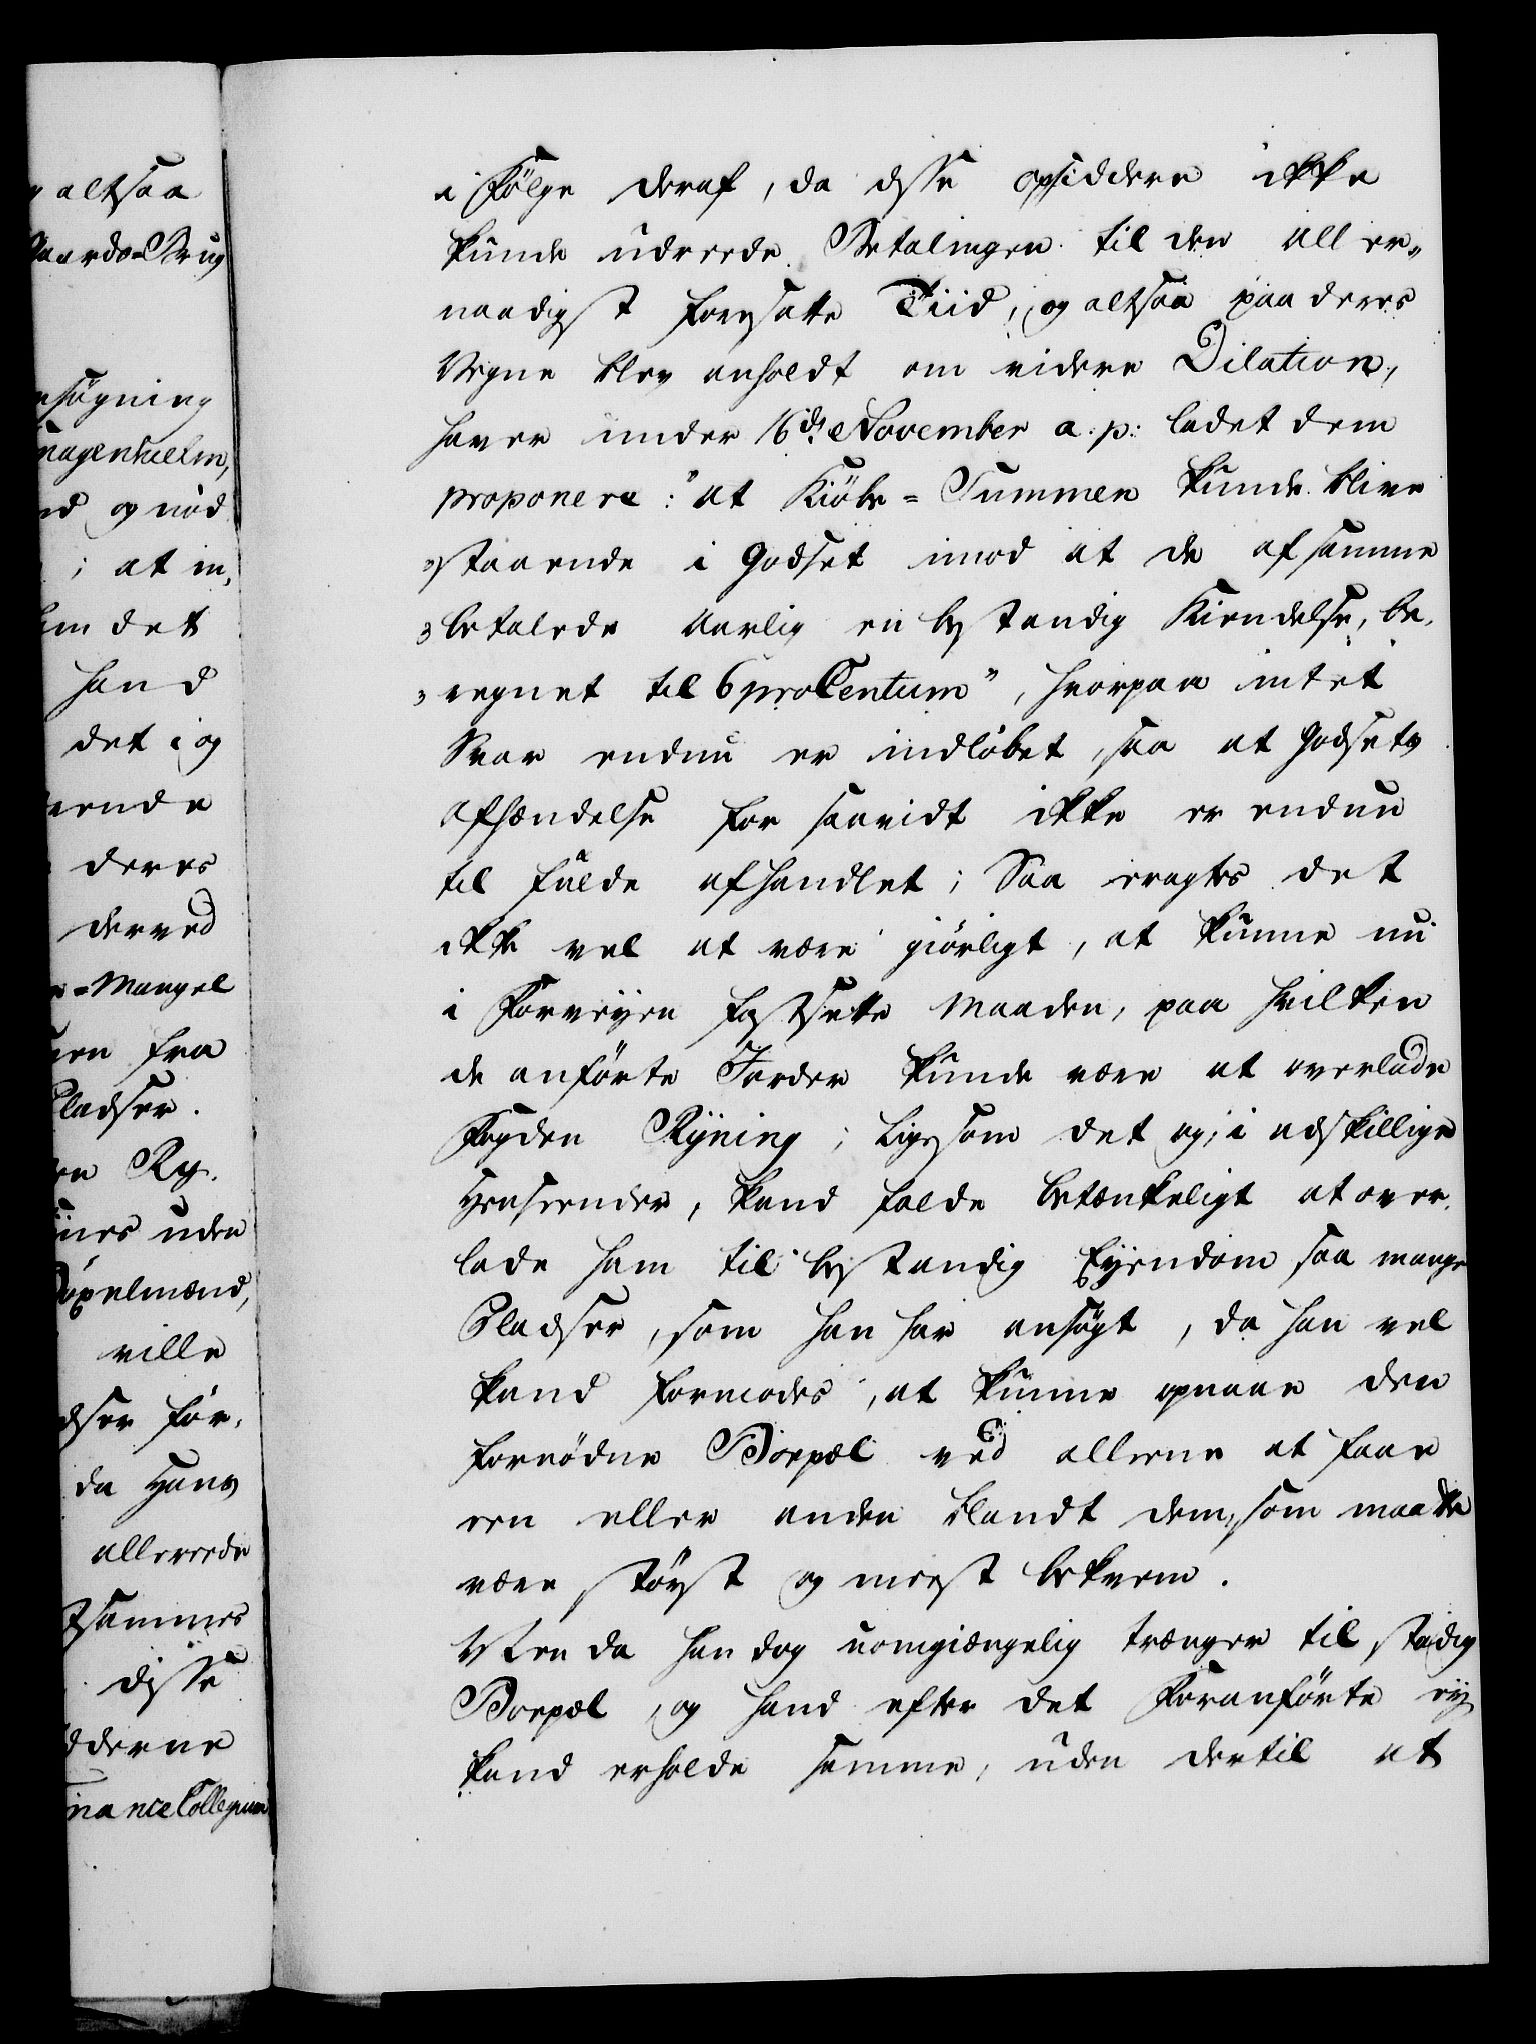 altsaa
Gaards-Brug
nsøgning
hagenhielm,
ed og nød
; at in,
em det
hand
det i og
ende
deres
derved
=Mangel
en fra
Pladser.
en Ry.
nes uden
Døpelmænd,
ville
dser før,
da Hans
allereede
tsammes
disse
dderne
inance Collegium
i Følge deraf, da disse opsiddere ikke
kunde udreede Betalingen til den aller„
naadigst forsatte Tiid, og altsaa paa deres
Vegne blev anholdt om videre Dilation,
haver under 16de November a. p: ladet dem
proponere: "at Kiøbe=Summen kunde blive
"staaende i Godset imod at de af samme
"betalede aarlig en bestandig Kiendelse, be,
"regnet til 6 proCentum", hvorpaa intet
Svar endnu er indløbet, saa at Godsets
Afhændelse for saavidt ikke er endnu
til fulde afhandlet; Saa eragtes det
ikke vel at være giørligt, at kunne nu
i Forveyen fastsette Maaden, paa hvilken
de anførte Jorder kunde være at overlade
Fogden Ryning; Ligesom det og, i adskillige
Henseender, kand falde betænkeligt at over,
lade ham til bestandig Eyendom saa mange
Pladser, som han har ansøgt, da han vel
kand formodes, at kunne opnaae den
fornødne Boepæl ved alleene at faae
een eller anden blandt dem, som maatte
være størst og meest beqvem.
Men da han dog uomgiængelig trænger til stadig
Boepæl, og hand efter det Foranførte ey
kand erholde samme, uden dertil at